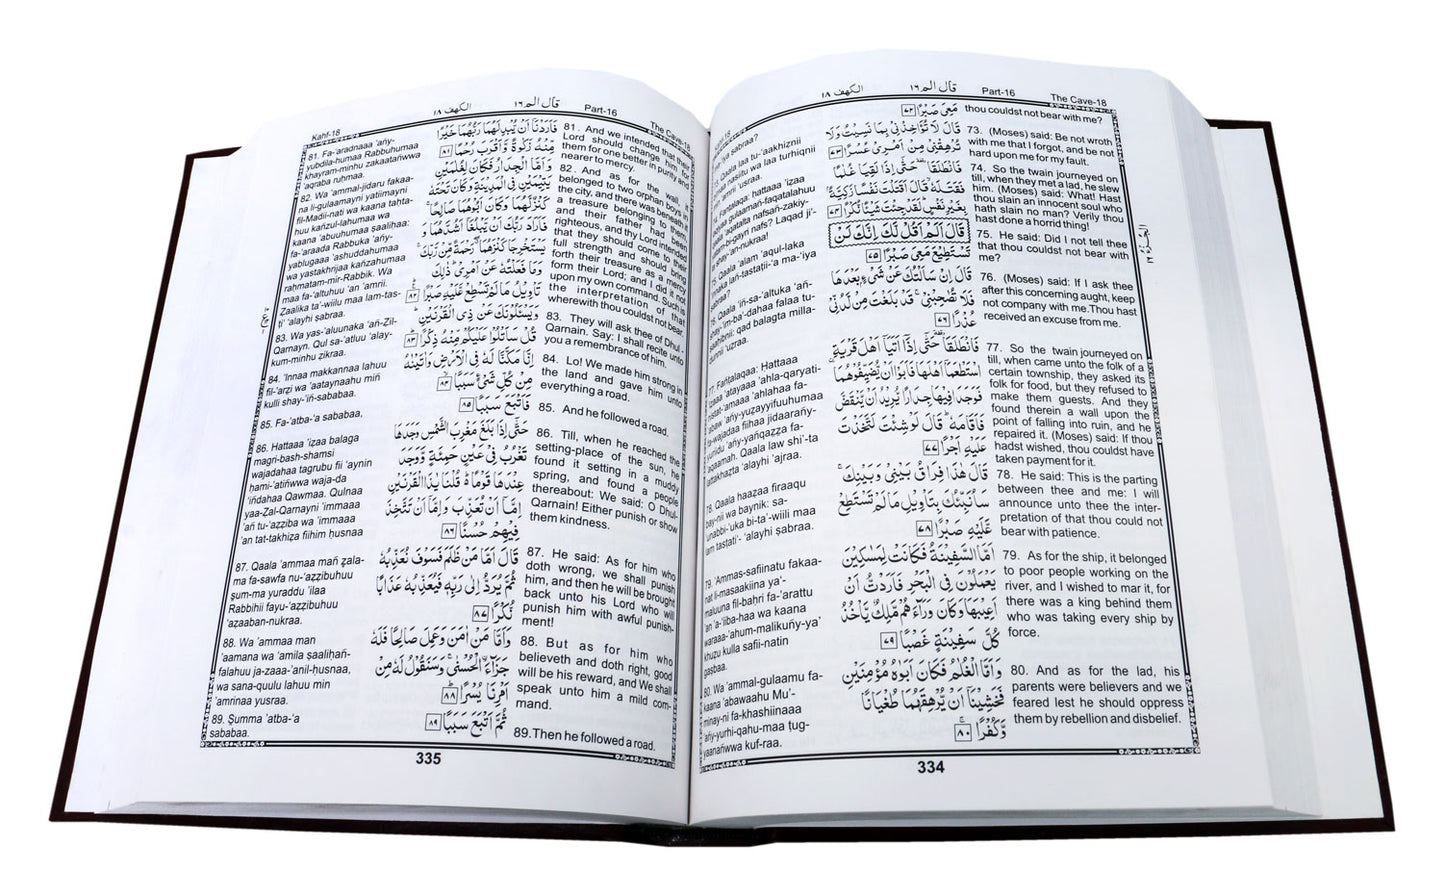 الكهف ١٨
قال الم ١٦
Part-16
The Cave-18
مَعِيَ صَبْرًا ٧٢
قَالَ لَا تُؤَاخِذْنِي بِمَا نَسِيتُ وَلَا
تُرْهِقْنِي مِنْ أَمْرِي عُسْرًا ٧٣
فَانْطَلَقَا حَتَّى إِذَا لَقِيَا غُلَامًا
فَقَتَلَهُ قَالَ أَقَتَلْتَ نَفْسًا زَكِيَّةً
بِغَيْرِ نَفْسٍ لَقَدْ جِئْتَ شَيْئًا نُكْرًا ٧٤
قَالَ أَلَمْ أَقُلْ لَكَ إِنَّكَ لَنْ
تَسْتَطِيعَ مَعِيَ صَبْرًا ٧٥
قَالَ إِنْ سَأَلْتُكَ عَنْ شَيْءٍ بَعْدَهَا
فَلَا تُصَاحِبْنِي قَدْ بَلَغْتَ مِنْ لَدُنِّي
عُذْرًا ٧٦
فَانْطَلَقَا حَتَّى إِذَا أَتَيَا أَهْلَ قَرْيَةٍ
اسْتَطْعَمَا أَهْلَهَا فَأَبَوْا أَنْ يُضَيِّفُوهُمَا
فَوَجَدَا فِيهَا جِدَارًا يُرِيدُ أَنْ يَنْقَضَّ
فَأَقَامَهُ قَالَ لَوْ شِئْتَ لَتَّخَذْتَ
عَلَيْهِ أَجْرًا ٧٧
قَالَ هَذَا فِرَاقُ بَيْنِي وَبَيْنِكَ
سَأُنَبِّئُكَ بِتَأْوِيلِ مَا لَمْ تَسْتَطِعْ
عَلَيْهِ صَبْرًا ٧٨
أَمَّا السَّفِينَةُ فَكَانَتْ لِمَسَاكِينَ
يَعْمَلُونَ فِي الْبَحْرِ فَأَرَدْتُ أَنْ
أَعِيبَهَا وَكَانَ وَرَاءَهُمْ مَلِكٌ يَأْخُذُ
كُلَّ سَفِينَةٍ غَصْبًا ٧٩
وَأَمَّا الْغُلَامُ فَكَانَ أَبَوَاهُ مُؤْمِنَيْنِ
فَخَشِينَا أَنْ يُرْهِقَهُمَا طُغْيَانًا
وَكُفْرًا ٨٠
thou couldst not bear with me?
73. (Moses) said: Be not wroth
with me that I forgot, and be not
hard upon me for my fault.
74. So the twain journeyed on
till, when they met a lad, he slew
him. (Moses) said: What! Hast
thou slain an innocent soul who
hath slain no man? Verily thou
hast done a horrid thing!
75. He said: Did I not tell thee
that thou couldst not bear with
me?
76. (Moses) said: If I ask thee
after this concerning aught, keep
not company with me.Thou hast
received an excuse from me.
77. So the twain journeyed on
till, when came unto the folk of a
certain township, they asked its
folk for food, but they refused to
make them guests. And they
found therein a wall upon the
point of falling into ruin, and he
repaired it. (Moses) said: If thou
hadst wished, thou couldst have
taken payment for it.
78. He said: This is the parting
between thee and me: I will
announce unto thee the inter-
pretation of that thou could not
bear with patience.
79. As for the ship, it belonged
to poor people working on the
river, and I wished to mar it, for
there was a king behind them
who was taking every ship by
force.
80. And as for the lad, his
parents were believers and we
feared lest he should oppress
them by rebellion and disbelief.
Qaala laa tu-'aakhiznii
nasiitu wa laa turhiqnii
'amrii 'usraa.
hattaaa 'izaa
gulaaman-faqatalahuu
'aqatalta nafsañ-zakiy-
bi-gayri nafs? Laqad ji'-
shay-'an-nukraa!
75. Qaala 'alam 'aqul-laka
lañ-tastatii-'a ma-'iya
sabraa?
76. Qaala 'iñ-sa-'altuka 'añ-
shay-'im-ba'-dahaa falaa tu-
qad balagta milla-
'uzraa.
77. Fañṭalaqaa: Hattaaa
'izaaa 'atayaaa 'ahla-qaryati-
'ahlahaa fa-
'abaw 'añy-yuẓayyifuuhumaa
fa-wajadaa fiihaa jidaarañy-
yuriidu 'añy-yañqaẓẓa fa-
'aqaamah. Qaala law shi'-ta
lattakhaẓta 'alayhi 'ajraa.
78. Qaala haaẓaa firaaqu
bay-nii wa baynik: sa-
'unabbi-'uka bi-ta'-wiili maa
lam tastati'- 'alayhi ṣabraa.
79. 'Ammas-safiinatu fakaa-
nat li-masaakiina ya'-
maluuna fil-baḥri fa-'arattu
'an 'a-'iiba-haa wa kaana
waraaa-'ahum-malikuñy-ya'
khuẓu kulla safii-natin
gasbaa.
80. Wa 'ammal-gulaamu fa-
kaana 'abawaahu Mu'-
minay-ni fa-khashiinaaa
'añy-yurhi-qahu-maa ṭug-
yaanañwwa kuf-raa.
334
Kahf-18
الكهف ١٨
قال الم ١٦
Part-16
The Cave-18
81. Fa-'aradnaaa 'añy-
yubdila-humaa Rabbuhumaa
khayram-minhu zakaatañwwa
'aqraba ruḥmaa.
82. Wa 'ammal-jidaru fakaa-
na li-gulaamayni yatiimayni
fil-Madii-nati wa kaana taḥta-
huu kañzul-lahumaa wa
kaana 'abuuhumaa ṣaaliḥaa:
fa-'araada Rabbuka 'añy-
yablugaaa 'ashuddahumaa
wa yastakhrijaa kañzahumaa
rahmatam-mir-Rabbik. Wa
maa fa-'altuhuu 'an 'amrii.
Zaalika ta'-wiilu maa lam-tas-
ti' 'alayhi ṣabraa.
83. Wa yas-'aluunaka 'añ-Ẓil-
Qarnayn. Qul sa-'atluu 'alay-
kum-minhu zikraa.
84. 'Innaa makkannaa lahuu
fil-'arẓi wa 'aataynaahu miñ
kulli shay-'iñ-sababaa.
85. Fa-'atba-'a sababaa,
86. Hattaaa 'iẓaa balaga
magri-bash-shamsi
wajadahaa tagrubu fii 'aynin
ḥami-'atiñwwa waja-da
'iñdahaa Qawmaa. Qulnaa
yaa-Ẓal-Qarnayni 'immaaa
'añ tu-'aẓẓiba wa 'immaaa
'an tat-takhiẓa fiihim ḥusnaa
87. Qaala 'ammaa mañ ẓala-
ma fa-sawfa nu-'aẓẓibuhuu
ṣum-ma yuraddu 'ilaa
Rabbihii fayu-'aẓẓibuhuu
'aẓaaban-nukraa.
88. Wa 'ammaa man
'aamana wa 'amila ṣaaliḥañ-
falahuu ja-zaaa-'anil-ḥusnaa,
wa sana-quulu lahuu min
'amrinaa yusraa.
89. Ṣumma 'atba-'a
sababaa.
فَأَرَدْنَا أَنْ يُبْدِلَهُمَا رَبُّهُمَا خَيْرًا
مِنْهُ زَكَاةً وَأَقْرَبَ رُحْمًا ٨١
وَأَمَّا الْجِدَارُ فَكَانَ لِغُلَامَيْنِ
يَتِيمَيْنِ فِي الْمَدِينَةِ وَكَانَ تَحْتَهُ
كَنْزٌ لَهُمَا وَكَانَ أَبُوهُمَا صَالِحًا
فَأَرَادَ رَبُّكَ أَنْ يَبْلُغَا أَشُدَّهُمَا وَ
يَسْتَخْرِجَا كَنْزَهُمَا رَحْمَةً مِنْ رَبِّكَ
وَمَا فَعَلْتُهُ عَنْ أَمْرِي ذَلِكَ
تَأْوِيلُ مَا لَمْ تَسْطِعْ عَلَيْهِ صَبْرًا ٨٢
وَيَسْأَلُونَكَ عَنْ ذِي الْقَرْنَيْنِ
قُلْ سَأَتْلُو عَلَيْكُمْ مِنْهُ ذِكْرًا ٨٣
إِنَّا مَكَّنَّا لَهُ فِي الْأَرْضِ وَآتَيْنَاهُ
مِنْ كُلِّ شَيْءٍ سَبَبًا ٨٤
فَأَتْبَعَ سَبَبًا ٨٥
حَتَّى إِذَا بَلَغَ مَغْرِبَ الشَّمْسِ وَجَدَهَا
تَغْرُبُ فِي عَيْنٍ حَمِئَةٍ وَوَجَدَ
عِنْدَهَا قَوْمًا قُلْنَا يَا ذَا الْقَرْنَيْنِ
إِمَّا أَنْ تُعَذِّبَ وَإِمَّا أَنْ تَتَّخِذَ
فِيهِمْ حُسْنًا ٨٦
قَالَ أَمَّا مَنْ ظَلَمَ فَسَوْفَ نُعَذِّبُهُ
ثُمَّ يُرَدُّ إِلَى رَبِّهِ فَيُعَذِّبُهُ عَذَابًا
نُكْرًا ٨٧
وَأَمَّا مَنْ آمَنَ وَعَمِلَ صَالِحًا فَلَهُ
جَزَاءً الْحُسْنَى وَسَنَقُولُ لَهُ مِنْ
أَمْرِنَا يُسْرًا ٨٨
ثُمَّ أَتْبَعَ سَبَبًا ٨٩
81. And we intended that their
Lord should change him for
them for one better in purity and
nearer to mercy.
82. And as for the wall, it
belonged to two orphan boys in
the city, and there was beneath it
a treasure belonging to them,
and their father had been
righteous, and thy Lord intended
that they should come to their
full strength and should bring
forth their treasure as a mercy
form their Lord; and I did it not
upon my own command. Such is
the interpretation of that
wherewith thou couldst not bear.
83. They will ask thee of Dhul -
Qarnain. Say: I shall recite unto
you a remembrance of him.
84. Lo! We made him strong in
the land and gave him unto
everything a road.
85. And he followed a road.
86. Till, when he reached the
setting-place of the sun, he
found it setting in a muddy
spring, and found a people
thereabout: We said: O Dhul-
Qarnain! Either punish or show
them kindness.
87. He said: As for him who
doth wrong, we shall punish
him, and then he will be brought
back unto his Lord who will
punish him with awful punish-
ment!
88. But as for him who
believeth and doth right, good
will be his reward, and We shall
speak unto him a mild com-
mand.
89.Then he followed a road.
335